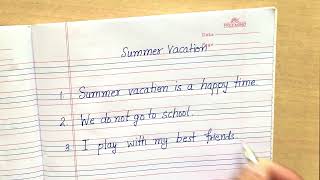 Date
Summer Vacation
1. Summer vacation is a happy time.
2. We do not go to school.
3. I play with my best friends.